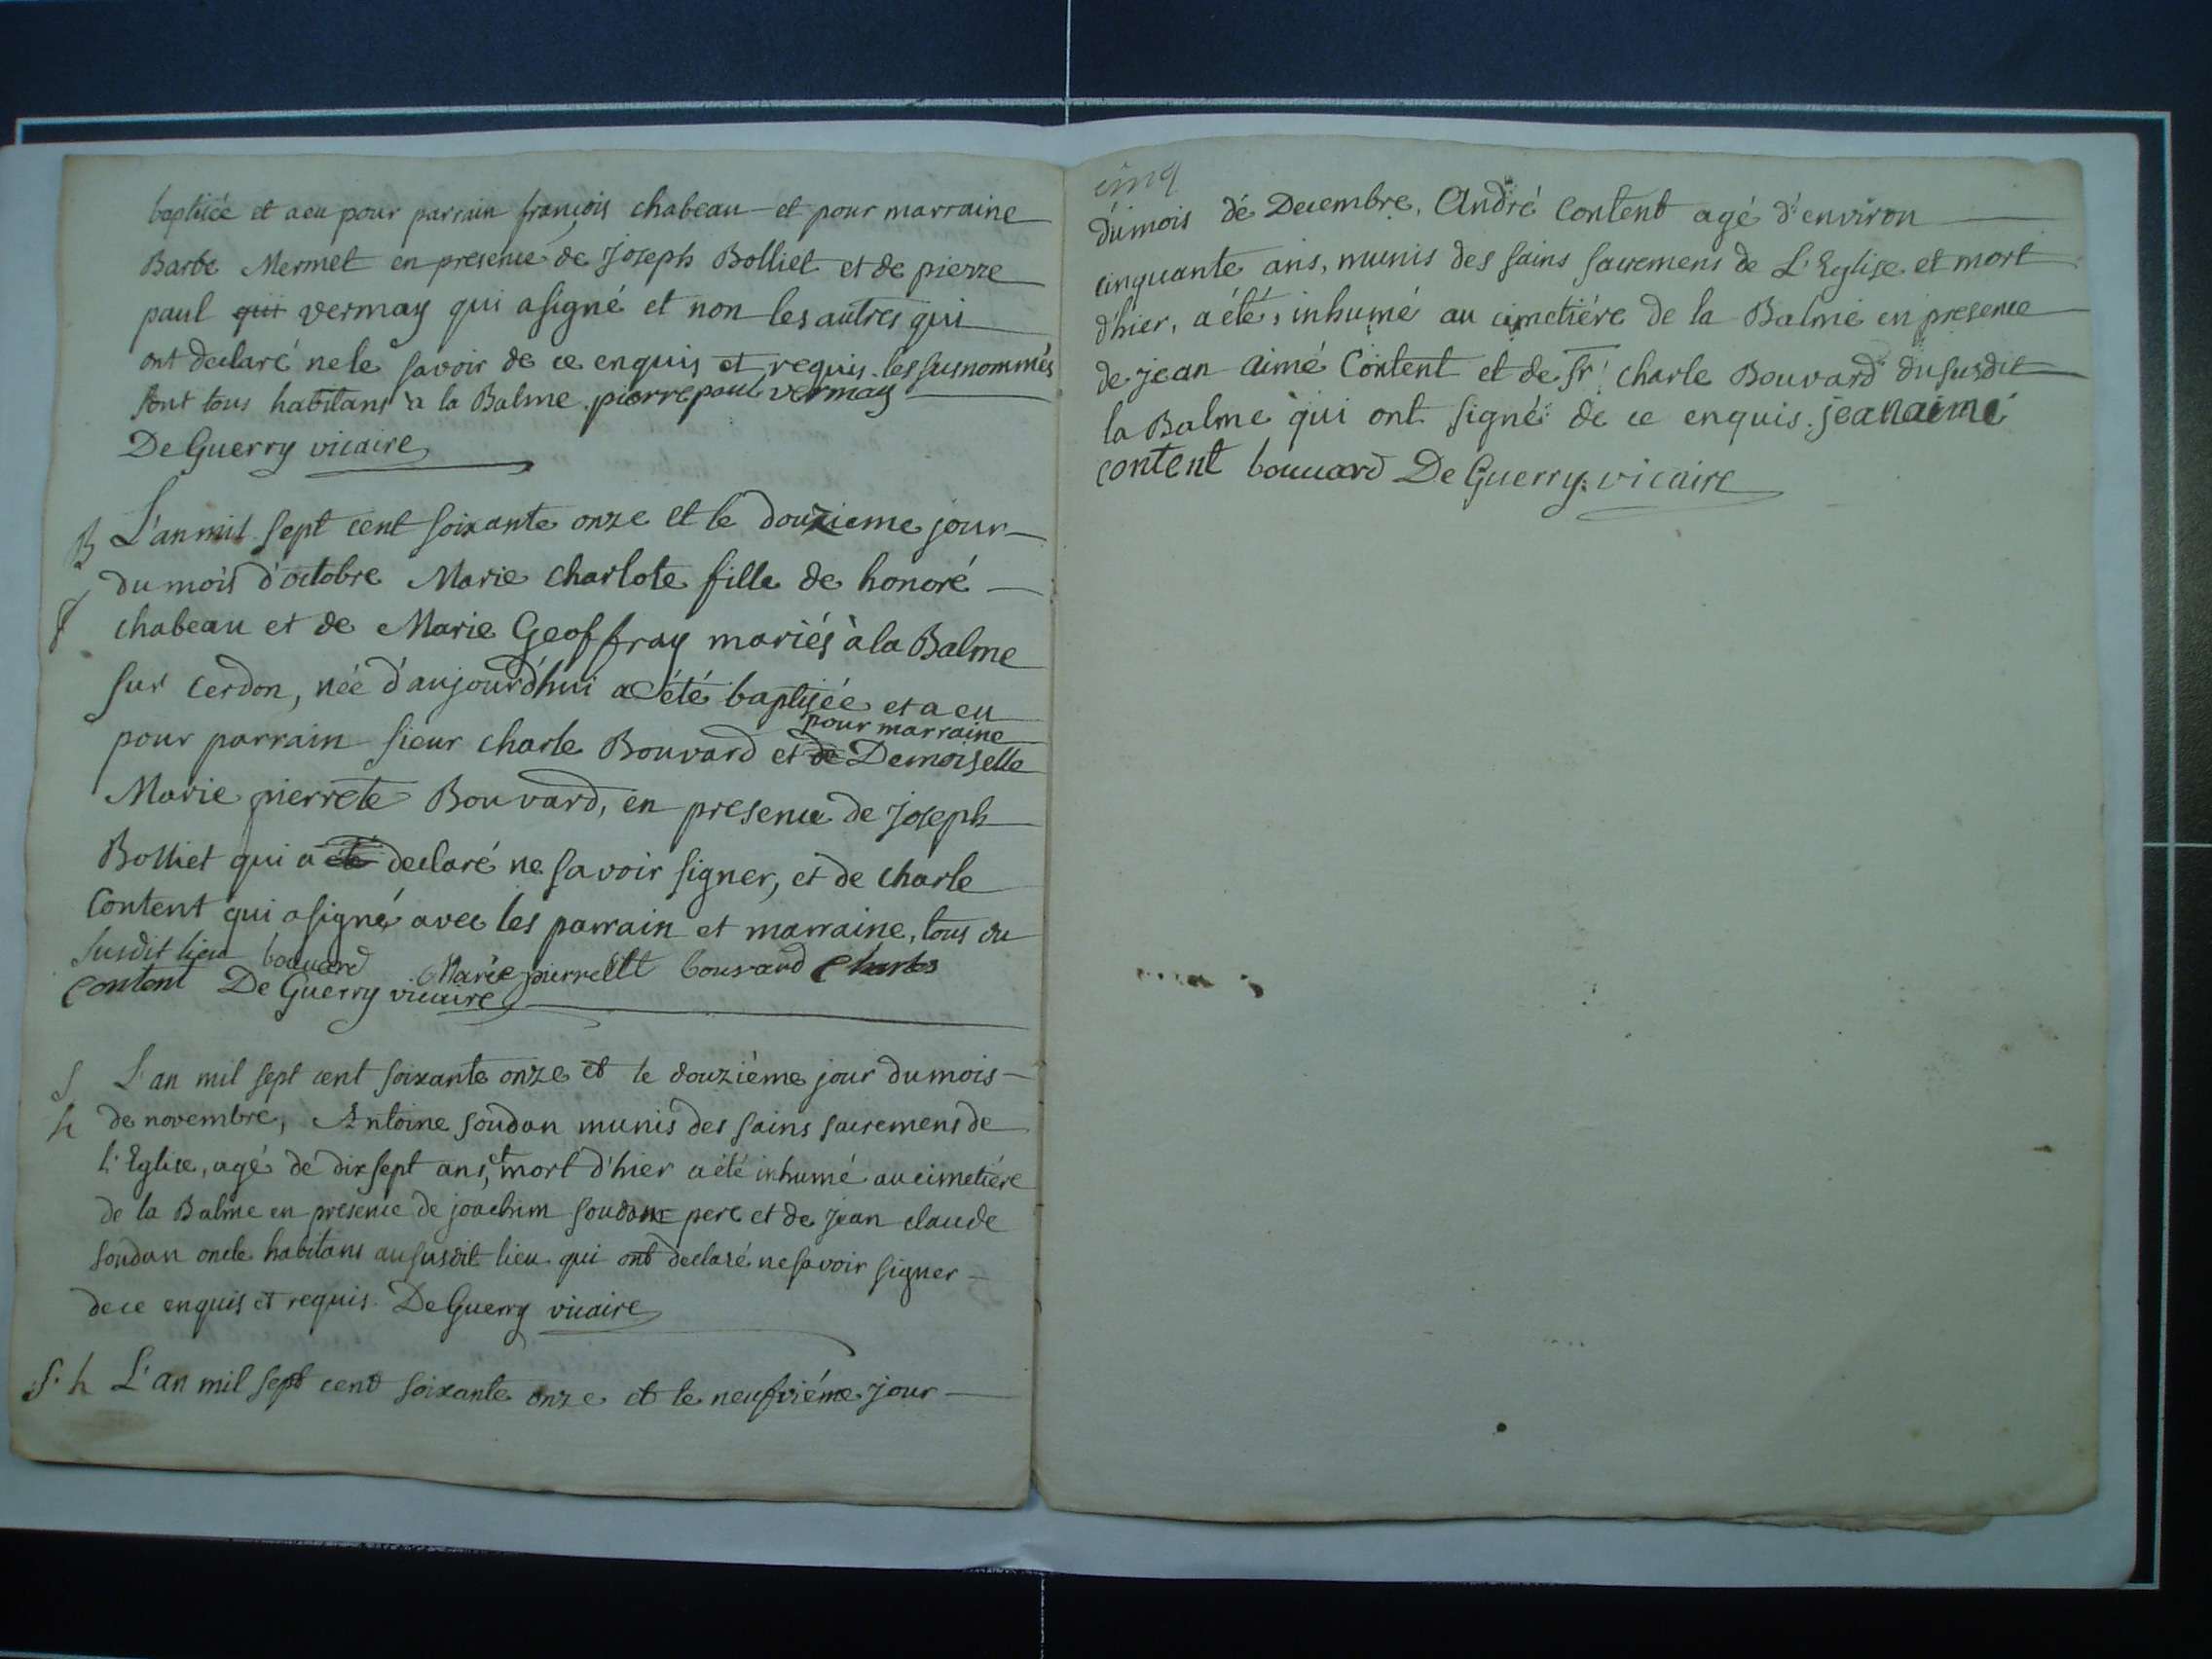 baptisée et a eu pour parrain françois chabeau et pour marraine
Barbe Mermet en presence de Joseph Bolliet et de pierre
paul qui vermay qui a signé et non les autres qui
ont declaré ne le savoir de ce enquis et requis. les susnommés
sont tous habitans a la Balme. pierre paul vermay
De Guerry vicaire
B L'an mil sept cent soixante onze et le douzieme jour
du mois d'octobre Marie Charlote fille de honoré
f chabeau et de Marie Geoffray mariés à la Balme
sur Cerdon, née d'aujourd'hui a été baptisée et a eu
pour marraine
pour parrain sieur charle Bouvard et de Demoiselle
Marie pierrete Bouvard, en presence de Joseph
Bolliet qui a été declaré ne savoir signer, et de charle
Content qui a signé avec les parrain et marraine, tous du
susdit lieu bouuard Marie pierrette bouvard Charles
Content De Guerry vicaire
S L'an mil sept cent soixante onze et le douziéme jour du mois
h de novembre, Antoine soudan munis des sains sacremens de
l'Eglise, agé de dix sept ans, et mort d'hier a été inhumé au cimetiére
de la Balme en presence de joachim soudan pere et de Jean claude
soudan oncle habitans au susdit lieu qui ont declaré ne savoir signer
de ce enquis et requis. De Guerry vicaire
S. h L'an mil sept cent soixante onze et le neufviéme jour
cinq
du mois de Decembre, André Content agé d'environ
cinquante ans, munis des sains sacremens de L'Eglise et mort
d'hier, a été, inhumé au cimetiére de la Balme en presence
de jean aimé Content et de sr charle Bouvard du susdit
la Balme qui ont signé de ce enquis. jean aimé
content bouuard De Guerry. vicaire